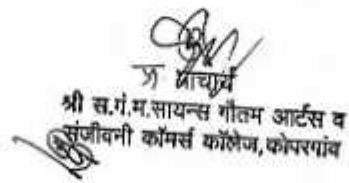 प्र प्राचार्य
श्री स.गं.म.सायन्स गौतम आर्टस व
संजीवनी कॉमर्स कॉलेज,कोपरगांव